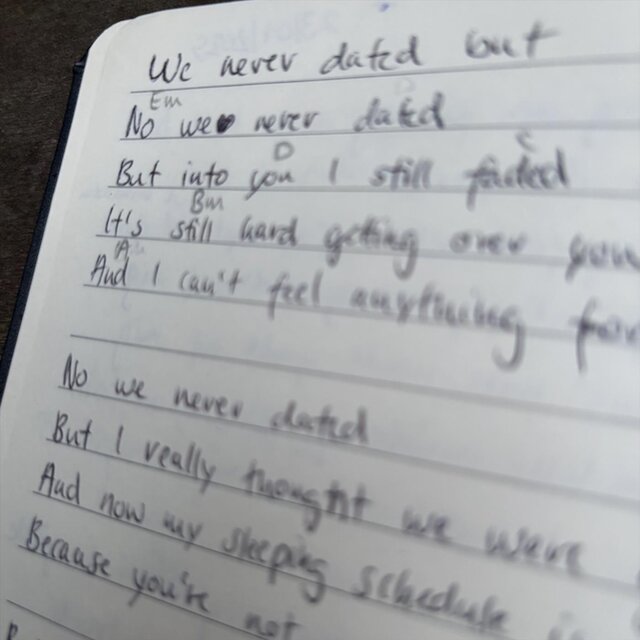 We never dated but
Em
No we never dated
D C
But into you I still faded
Bm
It's still hard getting over you
Am
And I can't feel anything for
No we never dated
But I really thought we were
And now my sleeping schedule
Because you're not